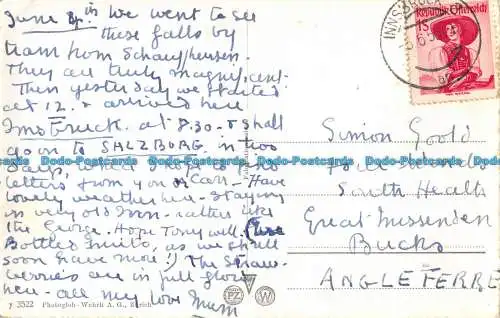 June 4th we went to see
these falls by
tram from Schaffhausen.
They are truly magnificent
Then yesterday we started
at 12. & arrived here
Innsbruck at 8.30. & shall
go on to SALZBURG in two
days, where I hope to find
letters from you & Carr - Have
lovely weather here - Staying
in very old Inn - rather like
the George. Hope Tony well. (Use
Bottled fruits, as we shall
soon have more!) The straw-
berries are in full glory
here - all my love Mum
7 3522 Photoglob-Wehrli A. G., Zürich
PZ W
INNSBRUCK
Republik Österreich
Simon Goold
South Heath
Great Missenden
Bucks
ANGLETERRE
Dodo-Postcards.com